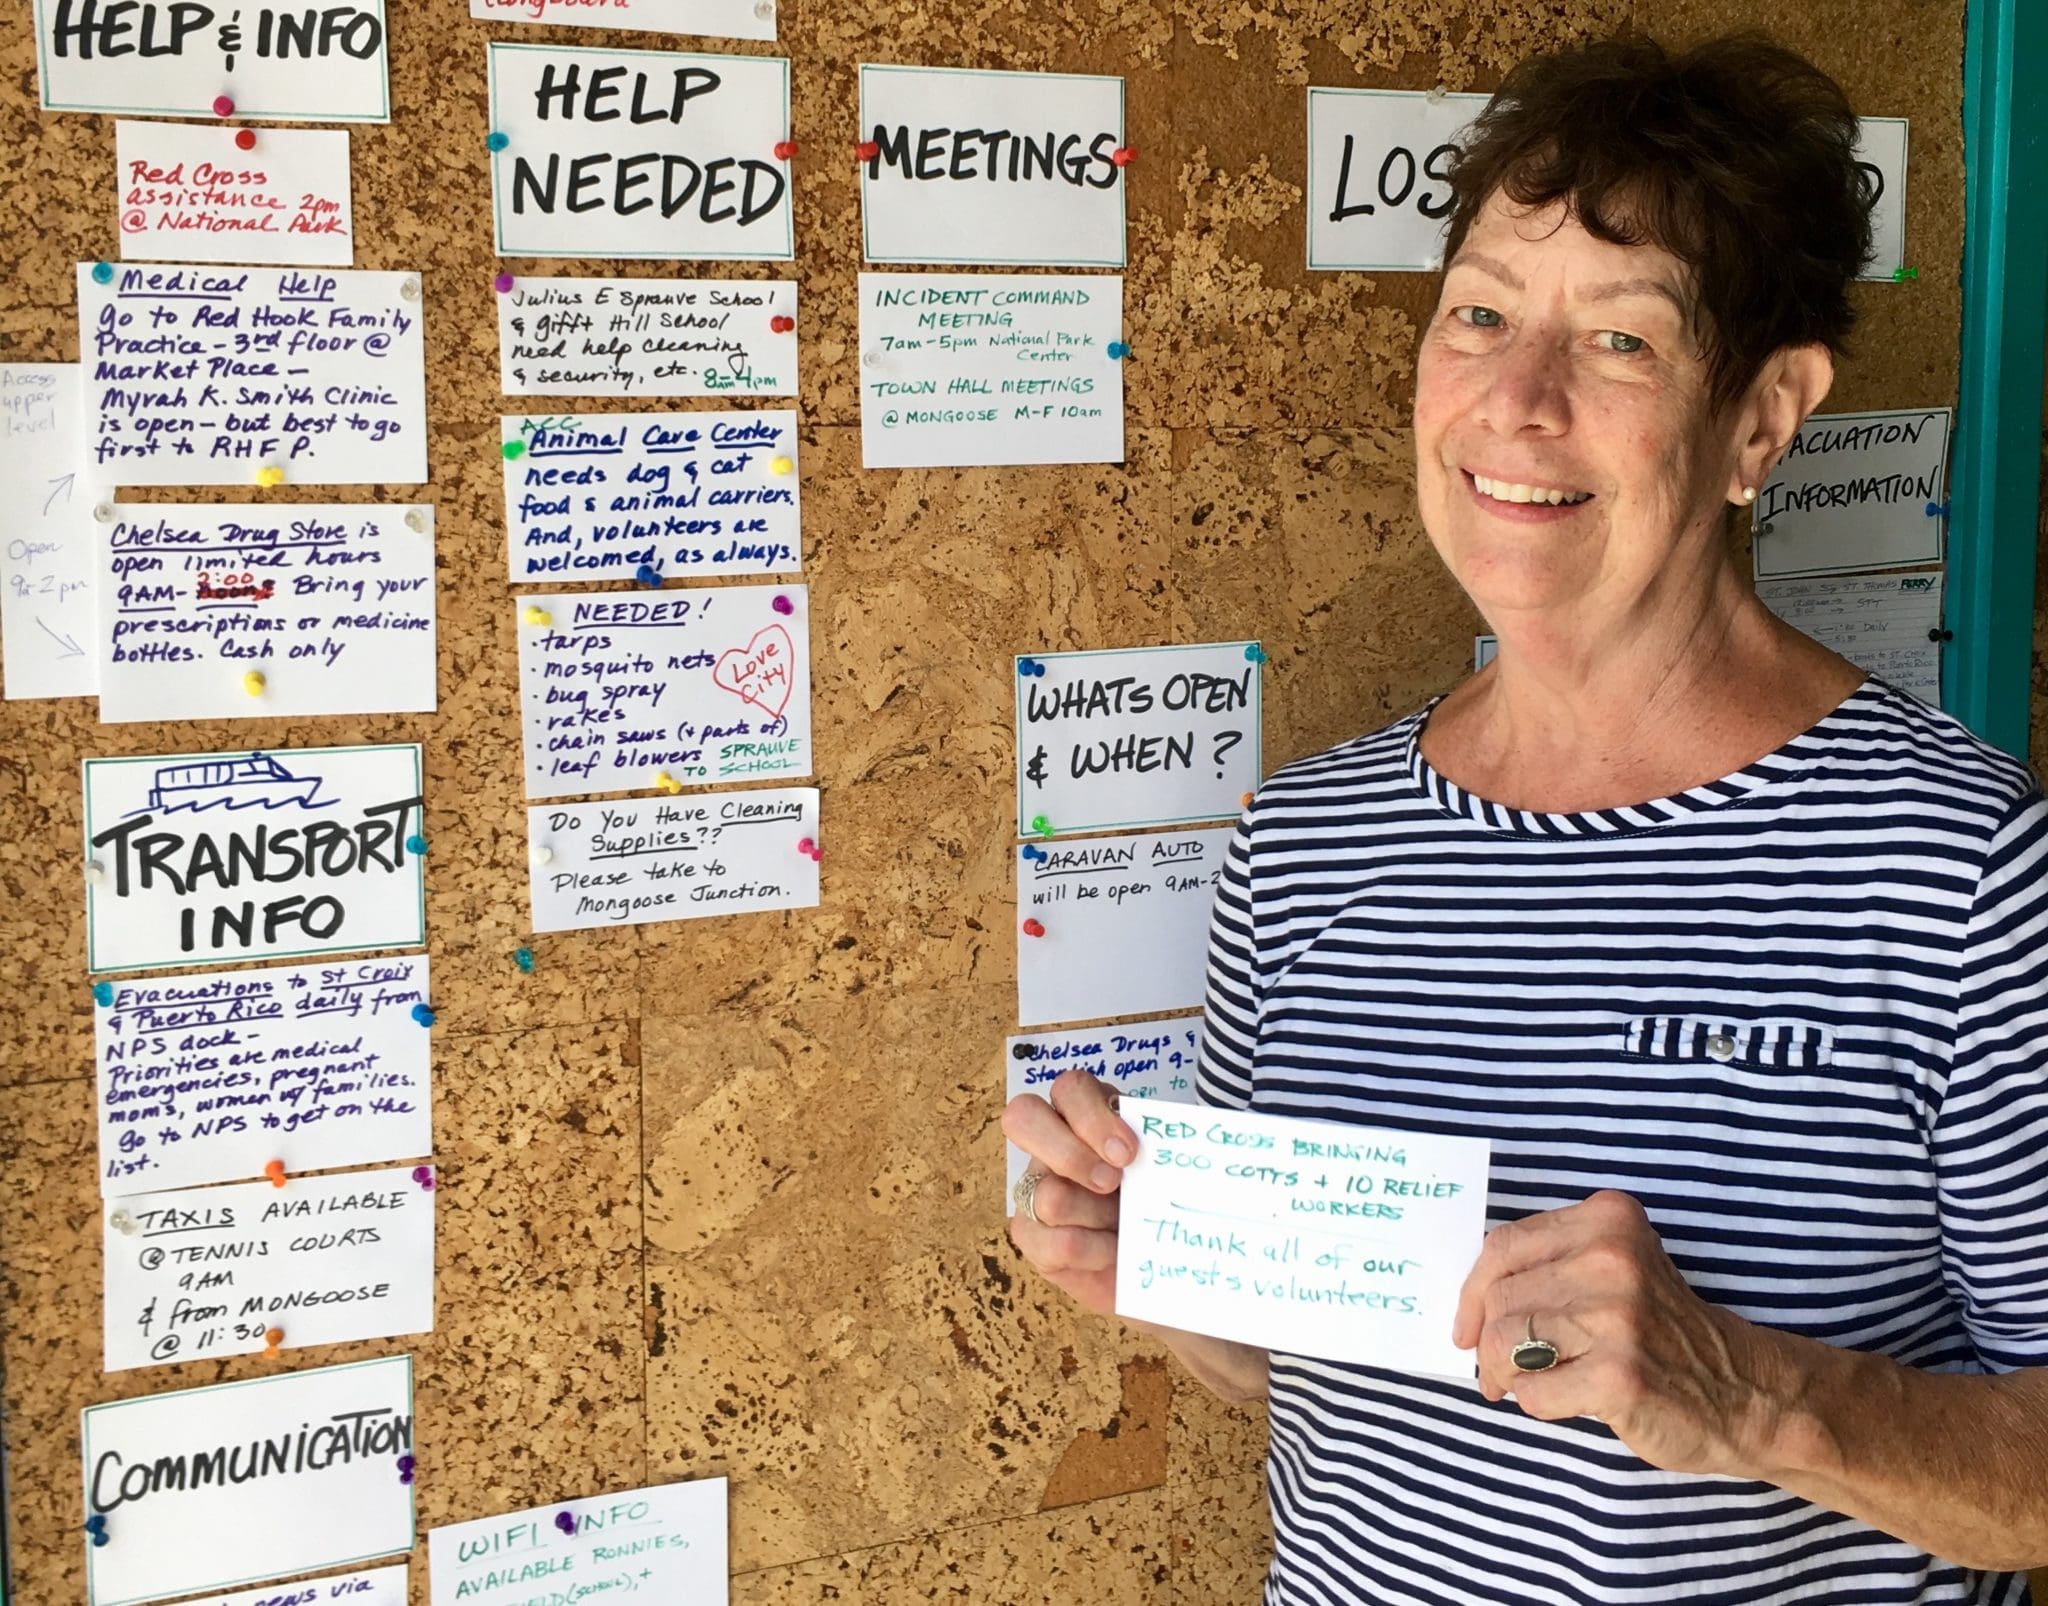 HELP & INFO
Red Cross
assistance 2pm
@ National Park
Medical Help
Go to Red Hook Family
Practice - 3rd floor @
Market Place -
Myrah K. Smith Clinic
is open - but best to go
first to RHFP.
Access
upper
level
Open
9-2pm
Chelsea Drug Store is
open limited hours
9AM- 2:00 Bring your
prescriptions or medicine
bottles. Cash only
TRANSPORT
INFO
Evacuations to St Croix
& Puerto Rico daily from
NPS dock -
Priorities are medical
emergencies, pregnant
moms, women w/ families.
Go to NPS to get on the
list.
TAXIS AVAILABLE
@ TENNIS COURTS
9AM
& from MONGOOSE
@ 11:30
COMMUNICATION
news via
WIFI INFO
AVAILABLE RONNIES,
(SCHOOL), +
HELP
NEEDED
Julius E Sprauve School
& Gifft Hill School
need help cleaning
& security, etc. 8am-4pm
ACC
Animal Care Center
needs dog & cat
food & animal carriers.
And, volunteers are
welcomed, as always.
NEEDED!
· tarps
· mosquito nets
· bug spray
· rakes
· chain saws (+ parts of)
· leaf blowers SPRAUVE
TO SCHOOL
Love
City
Do You Have Cleaning
Supplies??
Please take to
Mongoose Junction.
MEETINGS
INCIDENT COMMAND
MEETING
7am-5pm National Park
Center
TOWN HALL MEETINGS
@ MONGOOSE M-F 10am
LOS
WHATS OPEN
& WHEN?
CARAVAN AUTO
will be open 9AM-2
Chelsea Drugs &
open 9-
to
RED CROSS BRINGING
300 COTTS + 10 RELIEF
WORKERS
Thank all of our
guests volunteers.
ACUATION
INFORMATION
ST. JOHN ST. THOMAS FERRY
STT
Daily